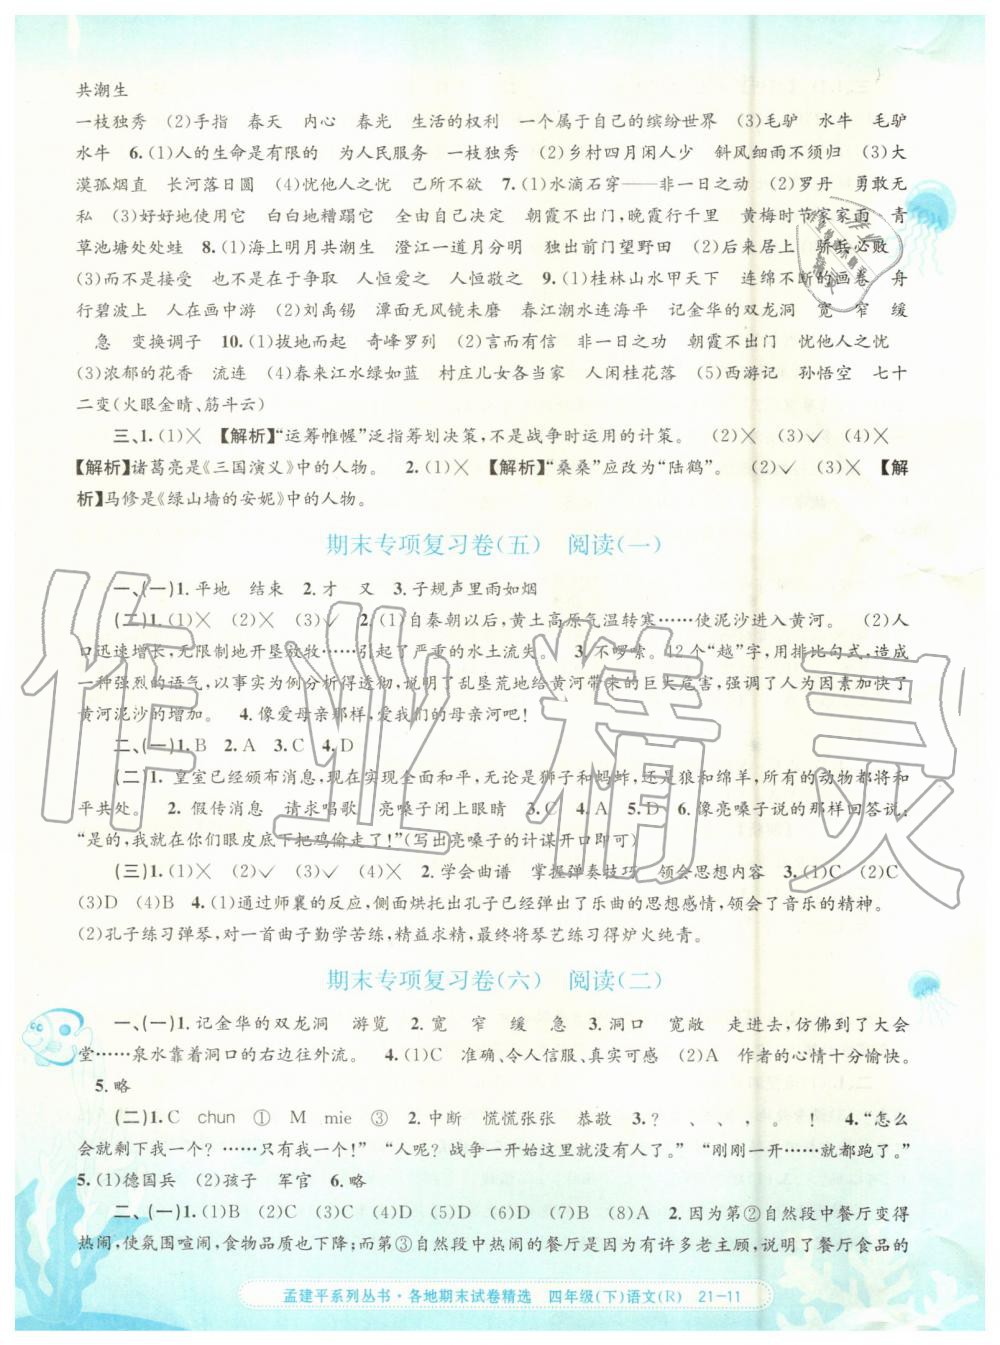 共潮生
一枝独秀 (2)手指 春天 内心 春光 生活的权利 一个属于自己的缤纷世界 (3)毛驴 水牛 毛驴
水牛 6.(1)人的生命是有限的 为人民服务 一枝独秀 (2)乡村四月闲人少 斜风细雨不须归 (3)大
漠孤烟直 长河落日圆 (4)忧他人之忧 己所不欲 7.(1)水滴石穿——非一日之动 (2)罗丹 勇敢无
私 (3)好好地使用它 白白地糟蹋它 全由自己决定 朝霞不出门,晚霞行千里 黄梅时节家家雨 青
草池塘处处蛙 8.(1)海上明月共潮生 澄江一道月分明 独出前门望野田 (2)后来居上 骄兵必败
(3)而不是接受 也不在于争取 人恒爱之 人恒敬之 9.(1)桂林山水甲天下 连绵不断的画卷 舟
行碧波上 人在画中游 (2)刘禹锡 潭面无风镜未磨 春江潮水连海平 记金华的双龙洞 宽 窄 缓
急 变换调子 10.(1)拔地而起 奇峰罗列 (2)言而有信 非一日之功 朝霞不出门 忧他人之忧
(3)浓郁的花香 流连 (4)春来江水绿如蓝 村庄儿女各当家 人闲桂花落 (5)西游记 孙悟空 七十
二变(火眼金睛、筋斗云)
三、1.(1)× 【解析】“运筹帷幄”泛指筹划决策,不是战争时运用的计策。 (2)× (3)✓ (4)×
【解析】诸葛亮是《三国演义》中的人物。 2.(1)× 【解析】“桑桑”应改为“陆鹤”。 (2)✓ (3)× 【解
析】马修是《绿山墙的安妮》中的人物。
期末专项复习卷(五) 阅读(一)
一、(一)1.平地 结束 2.才 又 3.子规声里雨如烟
(二)1.(1)× (2)× (3)✓ 2.(1)自秦朝以后,黄土高原气温转寒……使泥沙进入黄河。 (2)人
口迅速增长,无限制地开垦放牧……引起了严重的水土流失。 3.不啰嗦。12个“越”字,用排比句式,造成
一种强烈的语气,以事实为例分析得透彻,说明了乱垦荒地给黄河带来的巨大危害,强调了人为因素加快了
黄河泥沙的增加。 4.像爱母亲那样,爱我们的母亲河吧!
二、(一)1.B 2.A 3.C 4.D
(二)1. 皇室已经颁布消息,现在实现全面和平,无论是狮子和蚂蚱,还是狼和绵羊,所有的动物都将和
平共处。 2. 假传消息 请求唱歌 亮嗓子闭上眼睛 3.C 4.A 5.D 6.像亮嗓子说的那样回答说:
“是的,我就在你们眼皮底下把鸡偷走了!”(写出亮嗓子的计谋开口即可)
(三)1.(1)× (2)✓ (3)✓ (4)× 2.学会曲谱 掌握弹奏技巧 领会思想内容 3.(1)C (2)C
(3)D (4)B 4.(1)通过师襄的反应,侧面烘托出孔子已经弹出了乐曲的思想感情,领会了音乐的精神。
(2)孔子练习弹琴,对一首曲子勤学苦练,精益求精,最终将琴艺练习得炉火纯青。
期末专项复习卷(六) 阅读(二)
一、(一)1.记金华的双龙洞 游览 2.宽 窄 缓 急 3.洞口 宽敞 走进去,仿佛到了大会
堂……泉水靠着洞口的右边往外流。 4.(1)C 准确、令人信服、真实可感 (2)A 作者的心情十分愉快。
5.略
(二)1.C chun ① M mie ③ 2.中断 慌慌张张 恭敬 3.? 、 、 , 。 ! 4.“怎么
会就剩下我一个? ……只有我一个!” “人呢? 战争一开始就都跑了?” “刚刚一开……就都跑了。”
5.(1)德国兵 (2)孩子 军官 6.略
二、(一)1.(1)B (2)C (3)C (4)D (5)D (6)B (7)B (8)A 2.因为第②自然段中餐厅变得
热闹,使氛围喧闹,食物品质也下降;而第③自然段中热闹的餐厅是因为有许多老主顾,说明了餐厅食品的
孟建平系列丛书·各地期末试卷精选 四年级(下)语文(R) 21-11
作业精灵